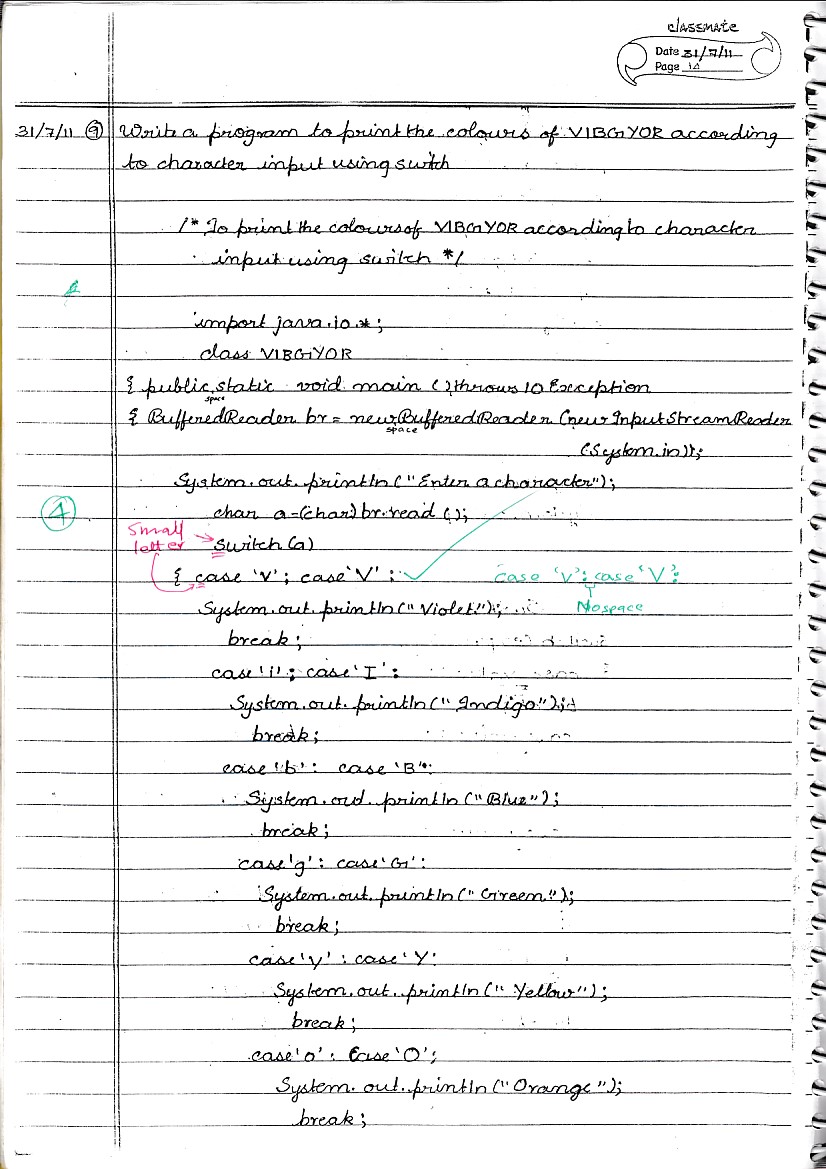 classmate
Date 31/7/11
Page 14
31/7/11 9 Write a program to print the colours of VIBGYOR according
to character input using switch
/* To print the colours of VIBGYOR according to character
input using switch */
import java.io.*;
class VIBGYOR
{ public static void main ( ) throws IO Exception
space
{ BufferedReader br = new BufferedReader (new InputStreamReader
space
(System.in));
System.out.println ("Enter a character");
4
char a=(char) br.read ( );
small
letter
Switch (a)
{ case 'v'; case 'V' : case 'v': case 'V':
No space
System.out.println (" Violet");
break;
case 'i' ; case 'I' :
System.out.println (" Indigo");
break;
case 'b' : case 'B':
System.out.println ("Blue");
break;
case 'g' : case 'G':
System.out.println (" Green");
break;
case 'y' : case 'Y:
System.out.println (" Yellow");
break;
case 'o' : Case 'O';
System.out.println ("Orange");
break;